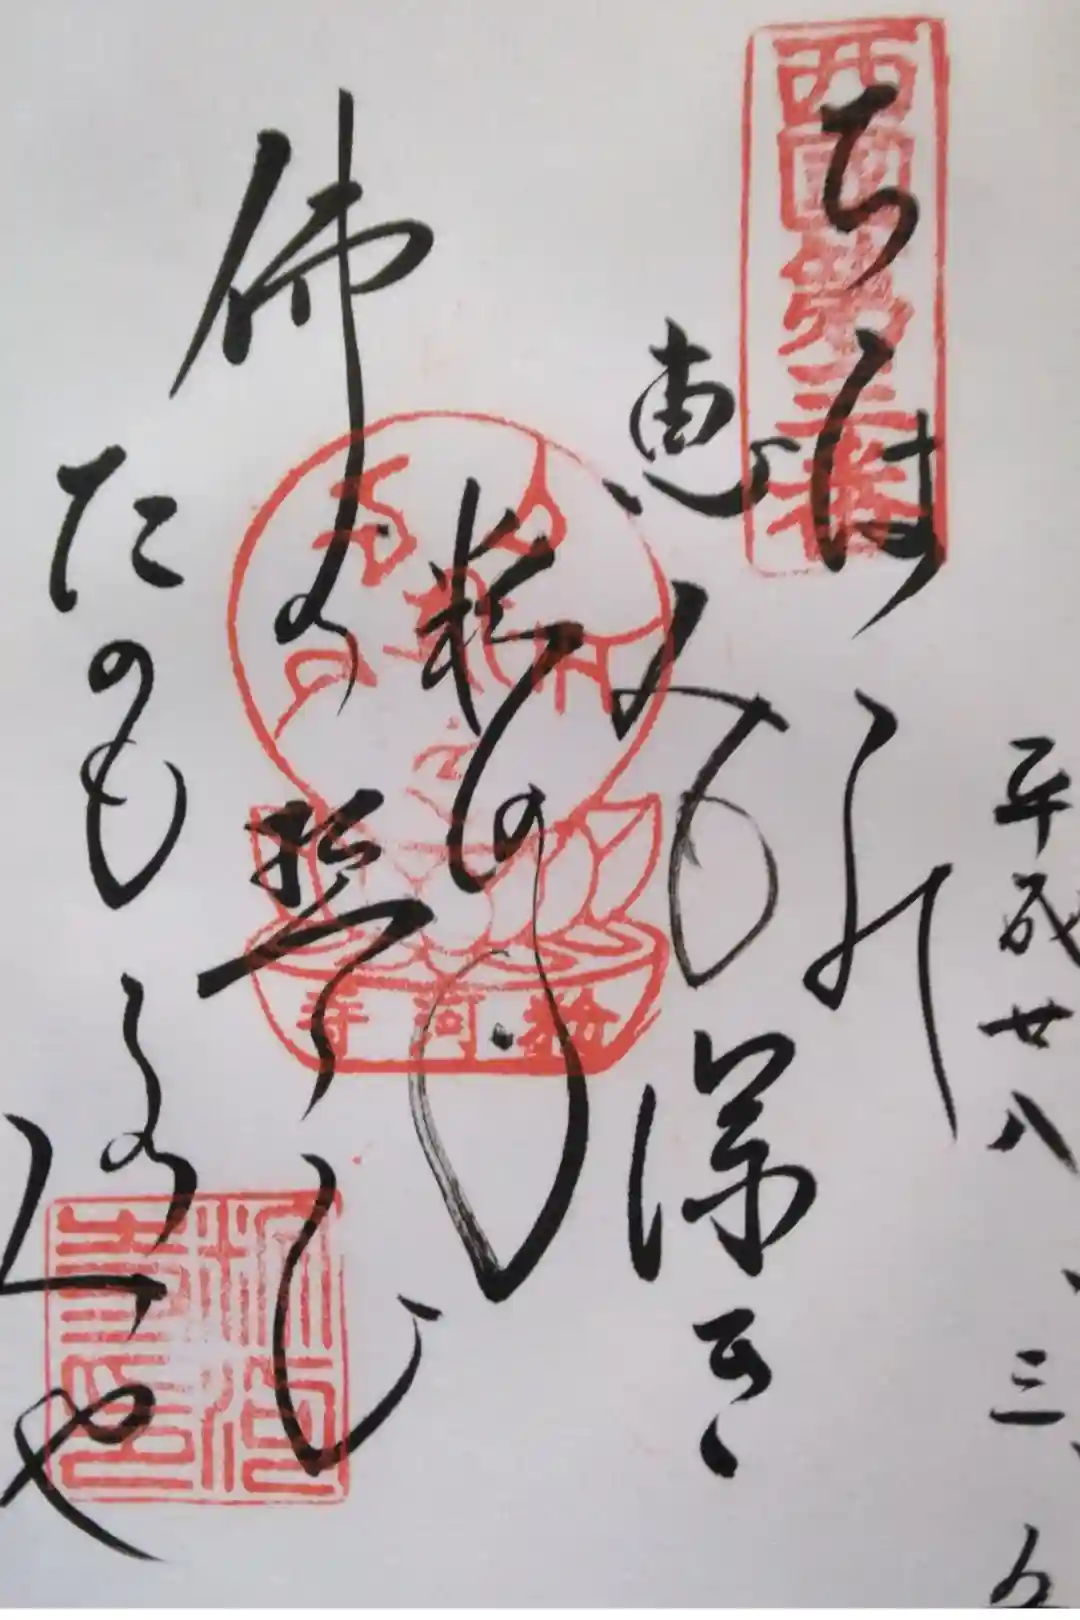 平成廿八、三、五
西國第三番
ちはの
恵みも深き
粉河
佛の誓ひ
たのもしのみや
粉河寺
粉河寺印